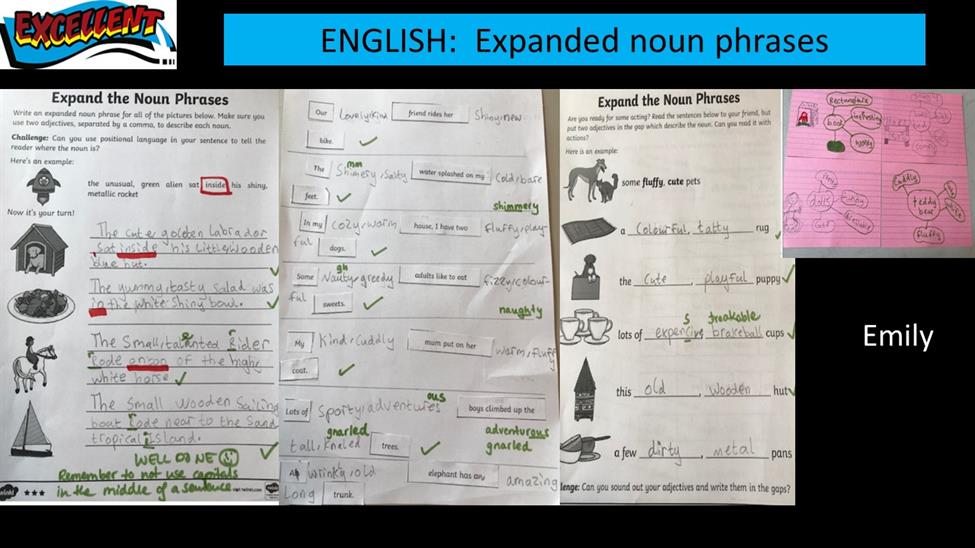 EXCELLENT
ENGLISH: Expanded noun phrases
Expand the Noun Phrases
Write an expanded noun phrase for all of the pictures below. Make sure you
use two adjectives, separated by a comma, to describe each noun.
Challenge: Can you use positional language in your sentence to tell the
reader where the noun is?
Here's an example:
the unusual, green alien sat inside his shiny,
metallic rocket
Now it's your turn!
The cute golden Labrador
sat inside his Little Wooden
blue hut.
The yummy, tasty salad was
in the white shiny bowl.
The Small, talented Rider
rode on of the high
white horse
The Small Wooden Sailing
boat rode near to the Sand
tropical island.
WELL DONE
Remember to not use capitals
in the middle of a sentence
visit twinkl.com
Our Lovely, kind friend rides her Shiny, new
bike.
The Shimery, Salty water splashed on my Cold, bare
mm
feet.
shimmery
In my Cozy, warm house, I have two fluffy, play-
ful dogs.
gh
Some Nauty, greedy adults like to eat fizzy, colour-
ful sweets.
naughty
My Kind, Cuddly mum put on her warm, fluffy
coat.
ous
Lots of Sporty, adventures boys climbed up the
gnarled adventurous
tall, kneled trees. gnarled
Wrinkly, old elephant has any amazing
Long trunk.
Expand the Noun Phrases
Are you ready for some acting? Read the sentences below to your friend, but
put two adjectives in the gap which describe the noun. Can you read it with
actions?
Here is an example:
some fluffy, cute pets
a Colourful, tatty rug
the cute, playful puppy
s
lots of expencive, brakeball cups
this old, wooden hut
a few dirty, metal pans
lenge: Can you sound out your adjectives and write them in the gaps?
Rectangular
boat
dolls
funny
Cuddly
teddy
bear
fluffy
Emily